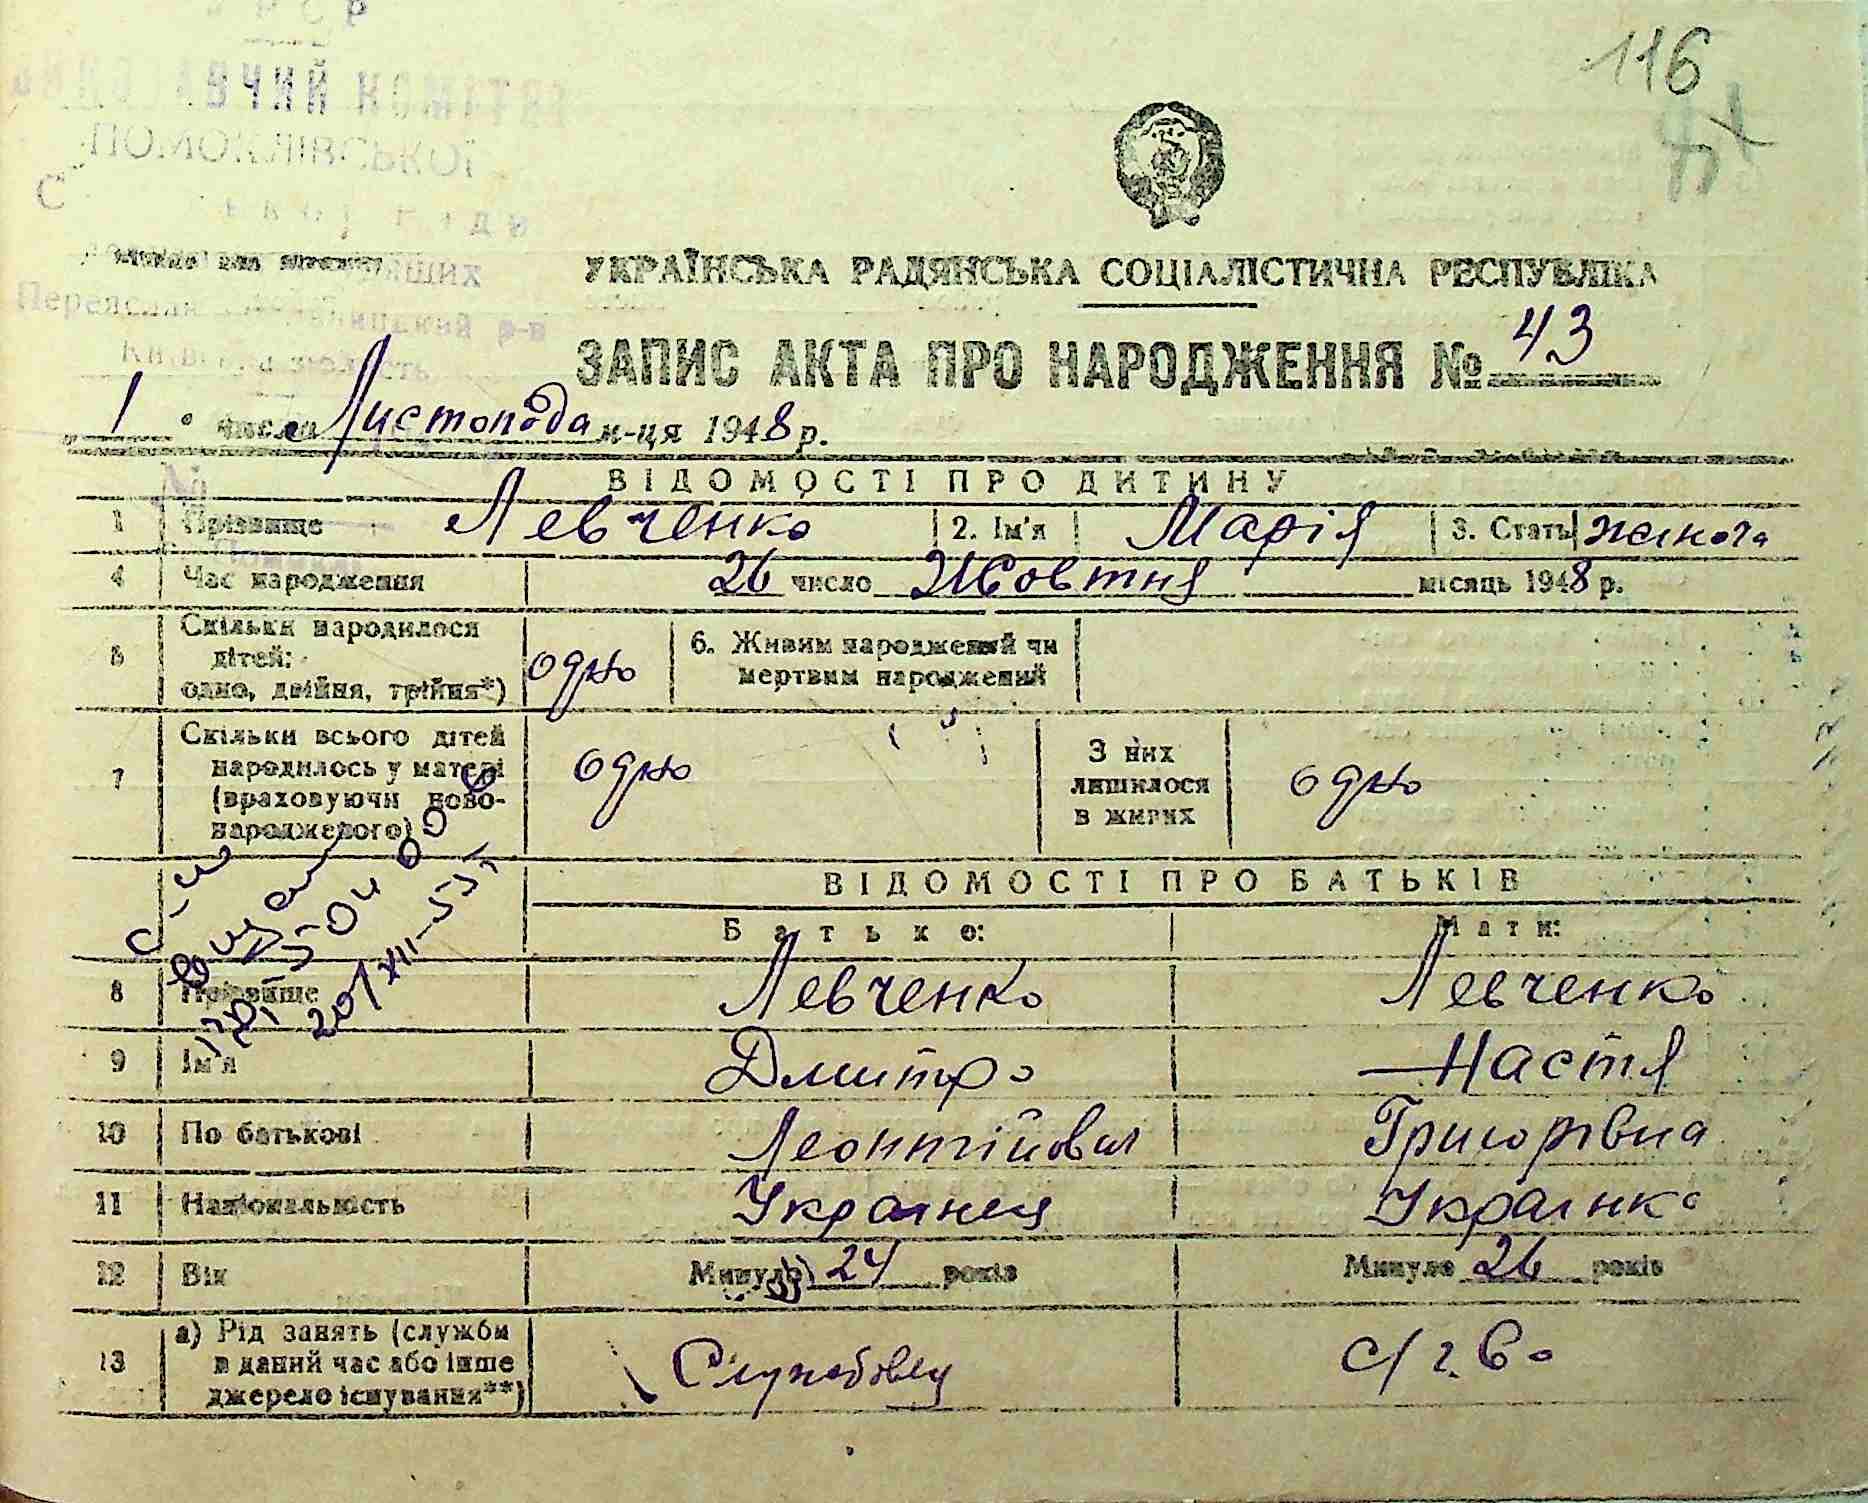 116
ВИКОНАВЧИЙ КОМІТЕТ
ПОМОКЛІВСЬКОЇ
УКРАЇНСЬКА РАДЯНСЬКА СОЦІАЛІСТИЧНА РЕСПУБЛІКА
ЗАПИС АКТА ПРО НАРОДЖЕННЯ № 43
„ 1 " числа Листопада м-ця 1948 р.
ВІДОМОСТІ ПРО ДИТИНУ
1 Прізвище Левченко 2. Ім'я Марія 3. Стать жіноча
4 Час народження 26 число Жовтня місяць 1948 р.
5 Скільки народилося
дітей:
одно, двійня, трійня*) одно 6. Живим народжений чи
мертвим народжений
7 Скільки всього дітей
народилось у матері
(враховуючи ново-
народженого) одно З них
лишилося
в живих одно
ВІДОМОСТІ ПРО БАТЬКІВ
Батько: Мати:
8 Прізвище Левченко Левченко
9 Ім'я Дмитро Настя
10 По батькові Леонтійович Григорівна
11 Національність Українець Українка
12 Вік Минуло 24 років Минуло 26 років
13 а) Рід занять (служби
в даний час або інше
джерело існування**) Службовець с/г. в о